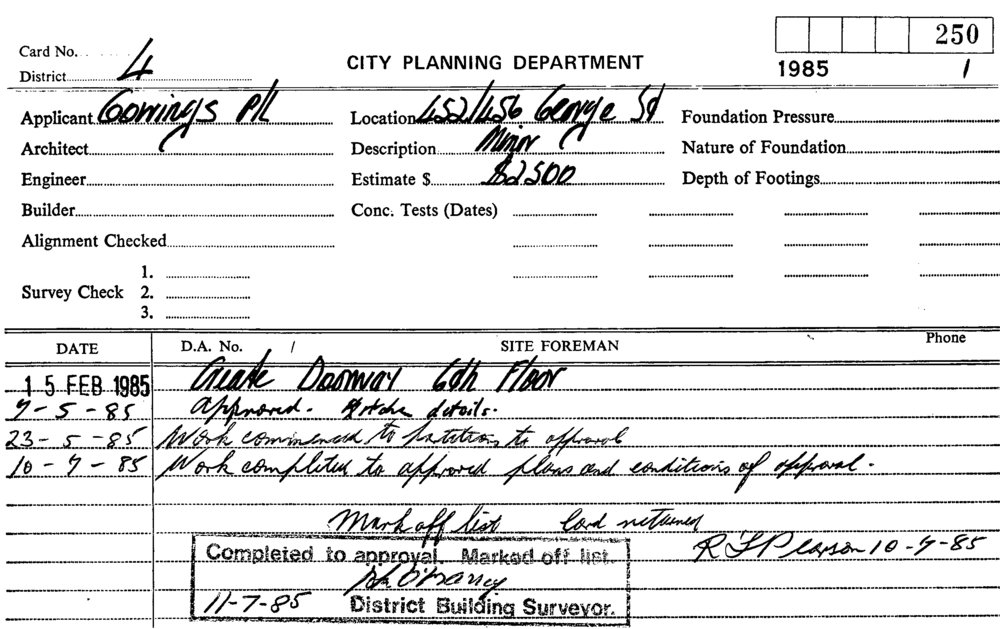 250
Card No.
District 4
CITY PLANNING DEPARTMENT
1985 1
Applicant Gowings P/L
Location 452/456 George St
Foundation Pressure
Architect
Description Minor
Nature of Foundation
Engineer
Estimate $ $2500
Depth of Footings
Builder
Conc. Tests (Dates)
Alignment Checked
1.
Survey Check 2.
3.
DATE D.A. No. / SITE FOREMAN Phone
15 FEB 1985 Create Doorway 6th Floor
7-5-85 Approved. details.
23-5-85 Work commenced to partitions to approval
10-7-85 Work completed to approved plans and conditions of approval.
Mark off list Card returned
R Pearson 10-7-85
Completed to approval. Marked off list.
11-7-85 District Building Surveyor.